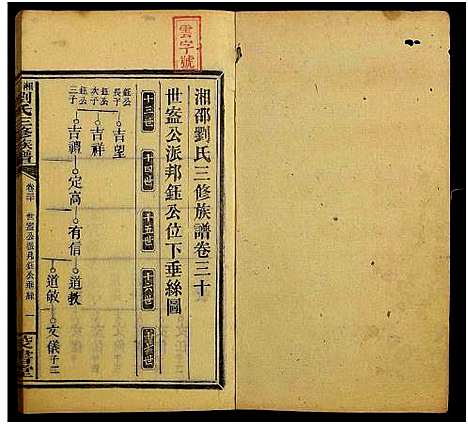 雲字號
湘邵劉氏三修族譜卷三十
世盗公派邦鈺公位下垂絲圖
十三世 十四世 十五世 十六世 十七世
鈺公長子 吉望
鈺公次子 吉祥
鈺公三子 吉禮 定高 有信 道教
道敏 文儀 子二
湘邵劉氏三修族譜 卷三十 世盗公派邦鈺公垂絲 一